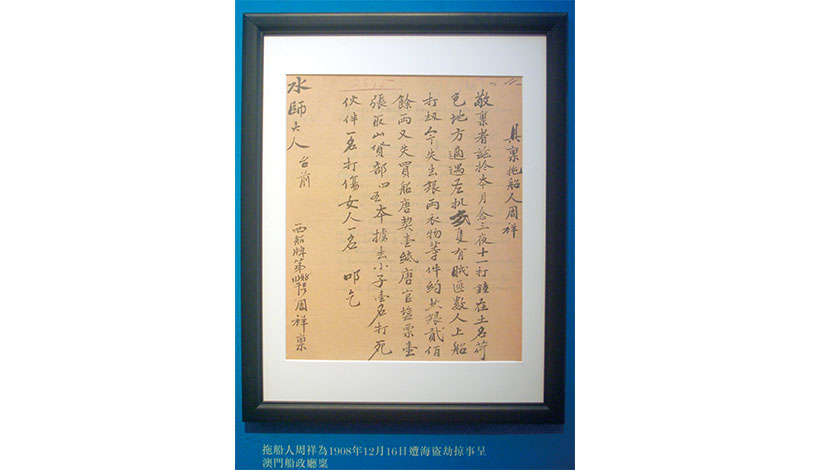 具稟拖船人周祥
敬稟者茲於本月念三夜十一打鐘在土名荷
包地方適遇扒有賊匪數人上船
打刼今失去銀兩衣物等件約共銀貳佰
餘兩又失買船唐契壹紙唐官鹽票壹
張取山貨部四五本擄去小子壹名打死
伙伴一名打傷女人一名 叩乞
水師大人 台前
西船牌第 周祥稟
拖船人周祥為1908年12月16日遭海盜劫掠事呈
澳門船政廳稟